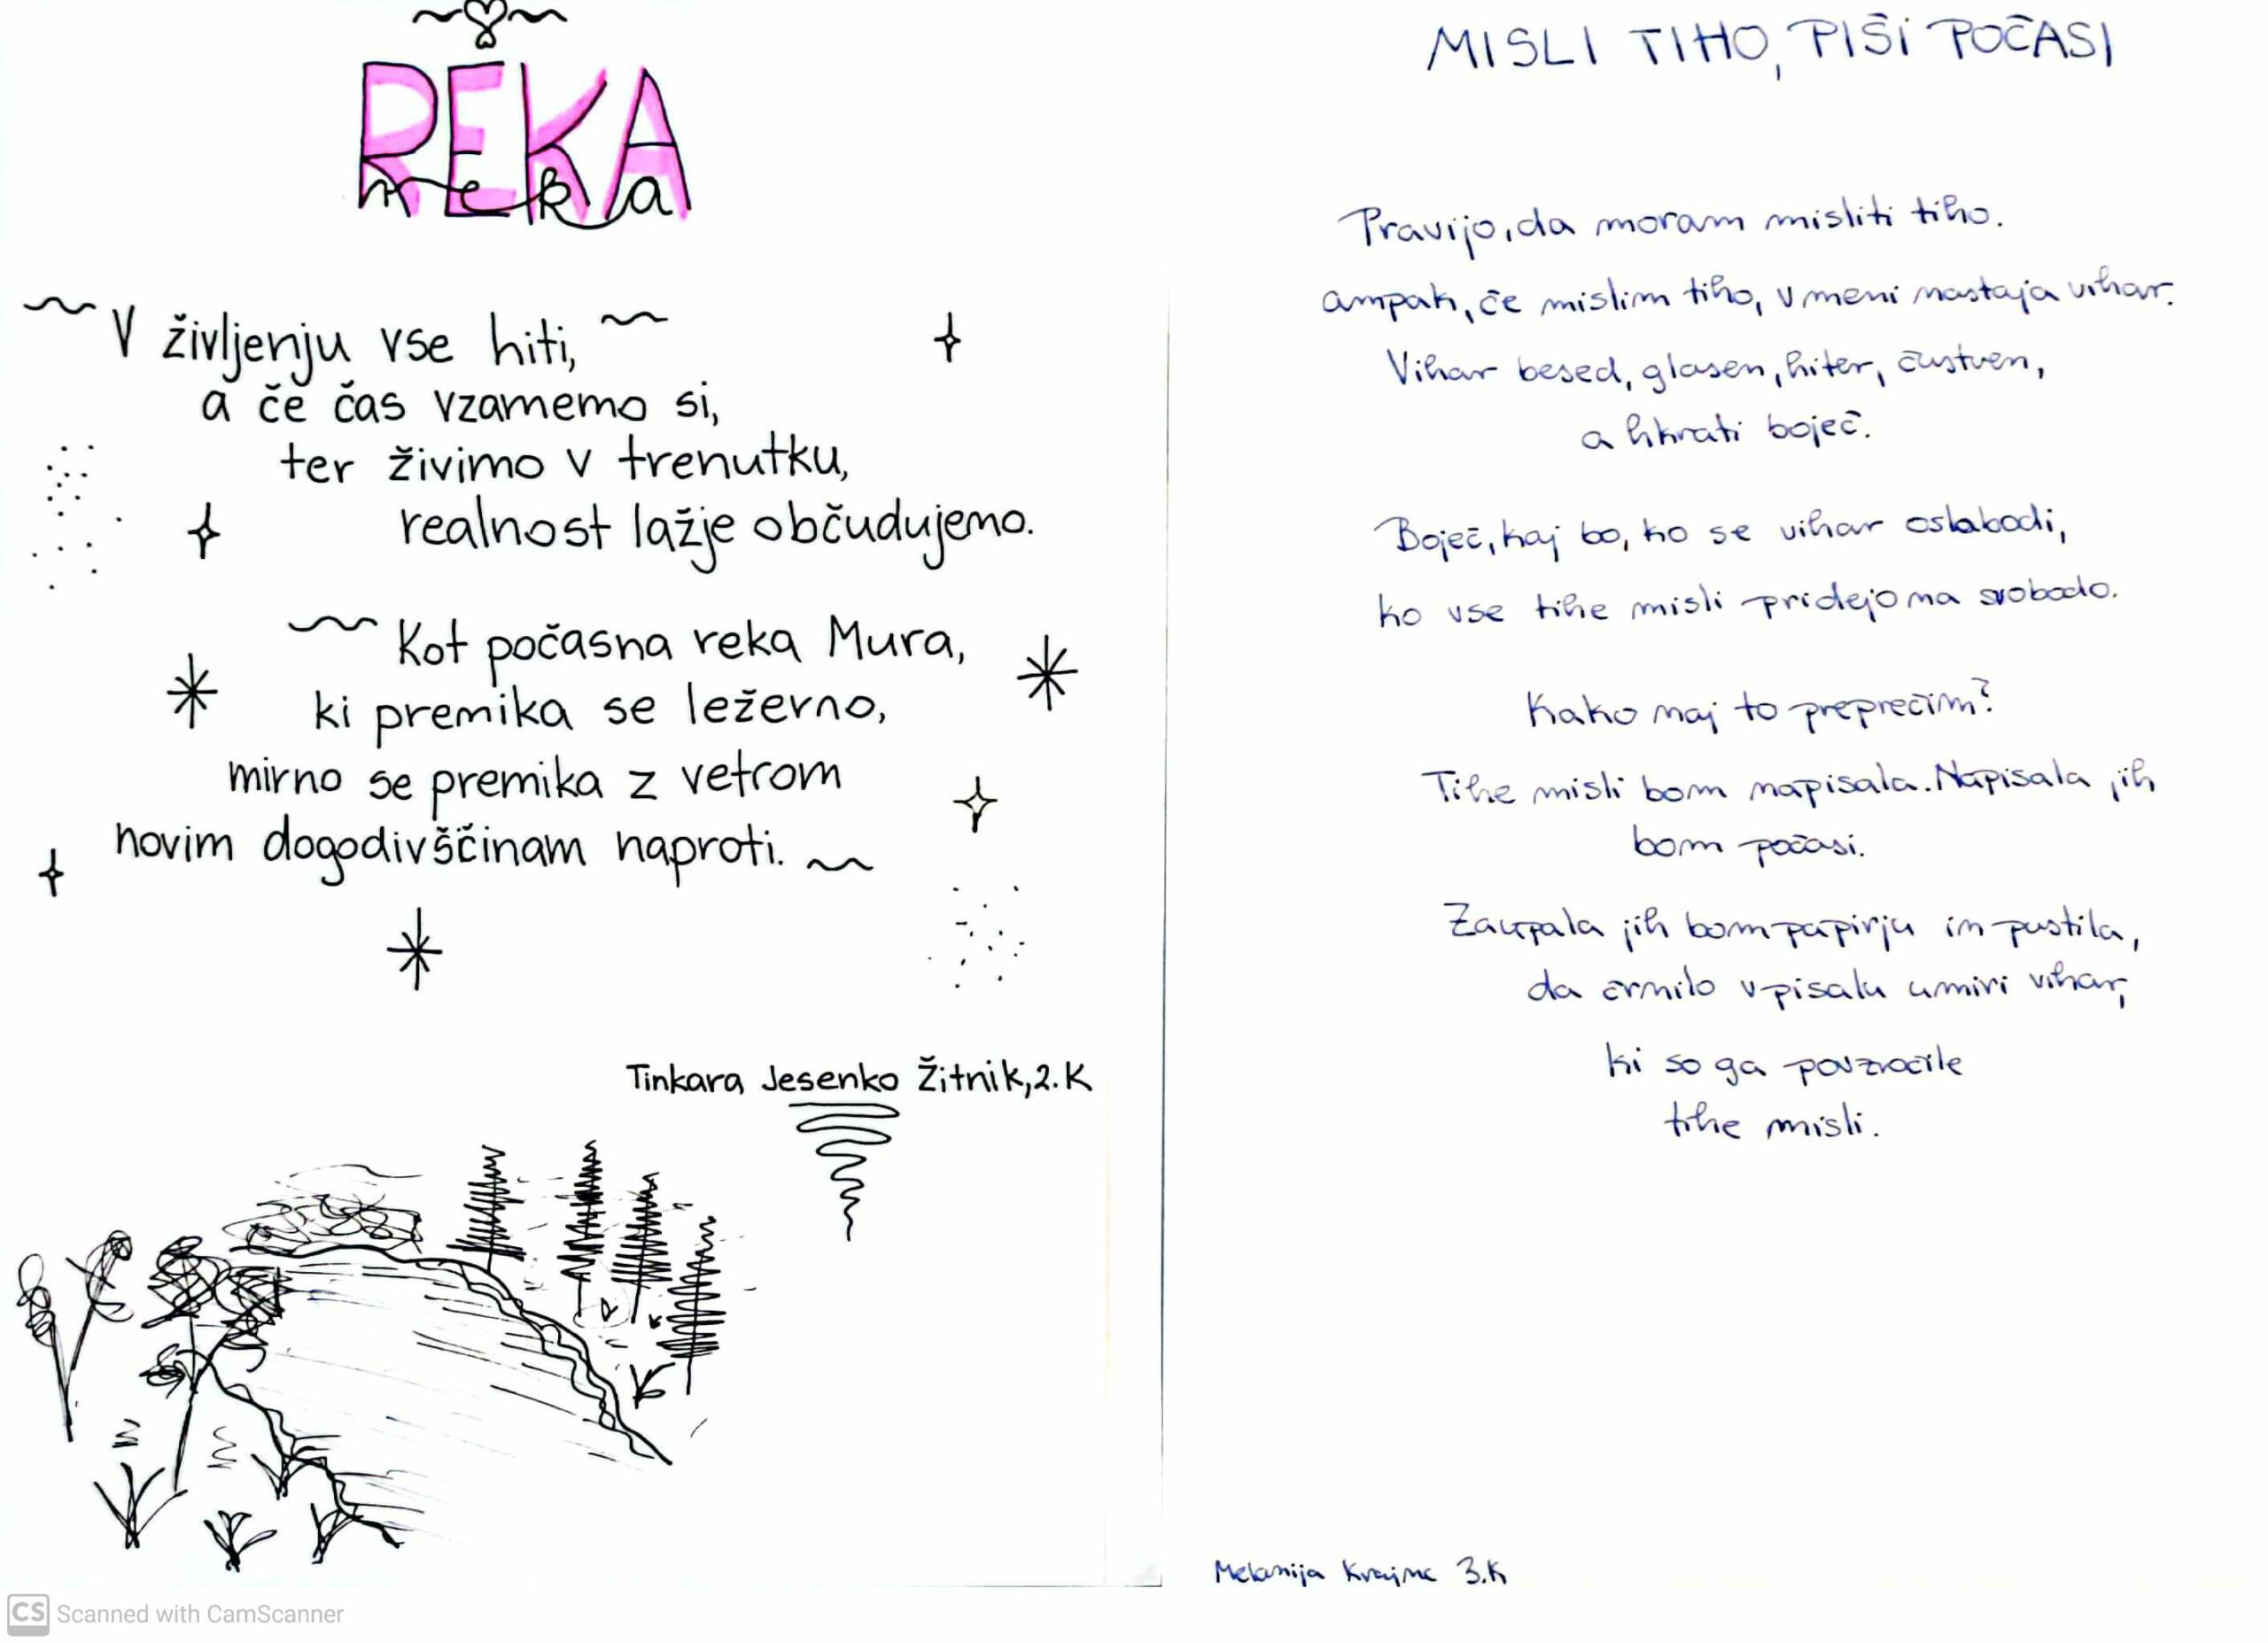 REKA
reka
V življenju vse hiti,
a če čas vzamemo si,
ter živimo v trenutku,
realnost lažje občudujemo.
Kot počasna reka Mura,
ki premika se ležerno,
mirno se premika z vetrom
novim dogodivščinam naproti.
Tinkara Jesenko Žitnik, 2.K
MISLI TIHO, PIŠI POČASI
Pravijo, da moram misliti tiho.
ampak, če mislim tiho, v meni nastaja vihar.
Vihar besed, glasen, hiter, čustven,
a hkrati boječ.
Boječ, kaj bo, ko se vihar oslabodi,
ko vse tihe misli pridejo na svobodo.
Kako naj to preprečim?
Tihe misli bom napisala. Napisala jih
bom počasi.
Zaupala jih bom papirju in pustila,
da črnilo v pisalu umiri vihar,
ki so ga povzročile
tihe misli.
Melanija 3.K
CS Scanned with CamScanner